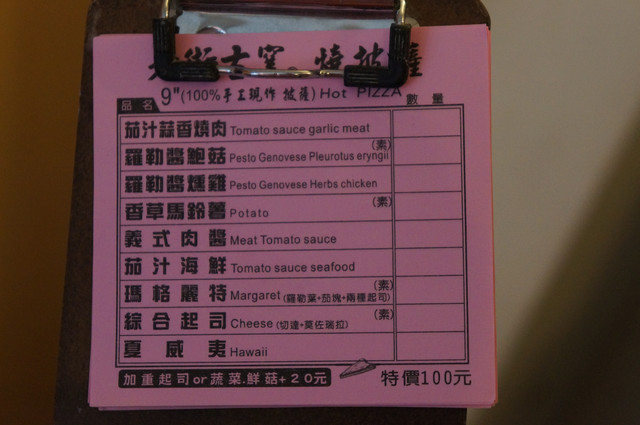 街古窯 燒披薩
9"(100%手工現作 披薩)Hot PIZZA
品名 數量
茄汁蒜香燒肉 Tomato sauce garlic meat
羅勒醬鮑菇 Pesto Genovese Pleurotus eryngii (素)
羅勒醬燻雞 Pesto Genovese Herbs chicken
香草馬鈴薯 Potato (素)
義式肉醬 Meat Tomato sauce
茄汁海鮮 Tomato sauce seafood
瑪格麗特 Margaret (羅勒葉+茄塊+兩種起司) (素)
綜合起司 Cheese (切達+莫佐瑞拉) (素)
夏威夷 Hawaii
加重起司or蔬菜.鮮菇+20元 特價100元